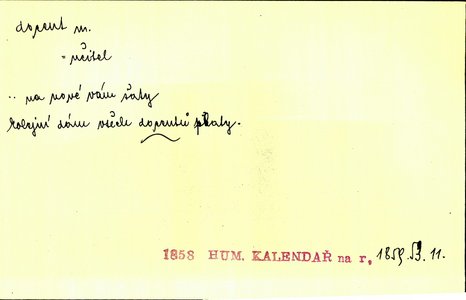 docent m.
= učitel
.. na nové vám šaty
kolejní dám všech docentů platy.
1858 HUM. KALENDAŘ na r. 1859. 11.